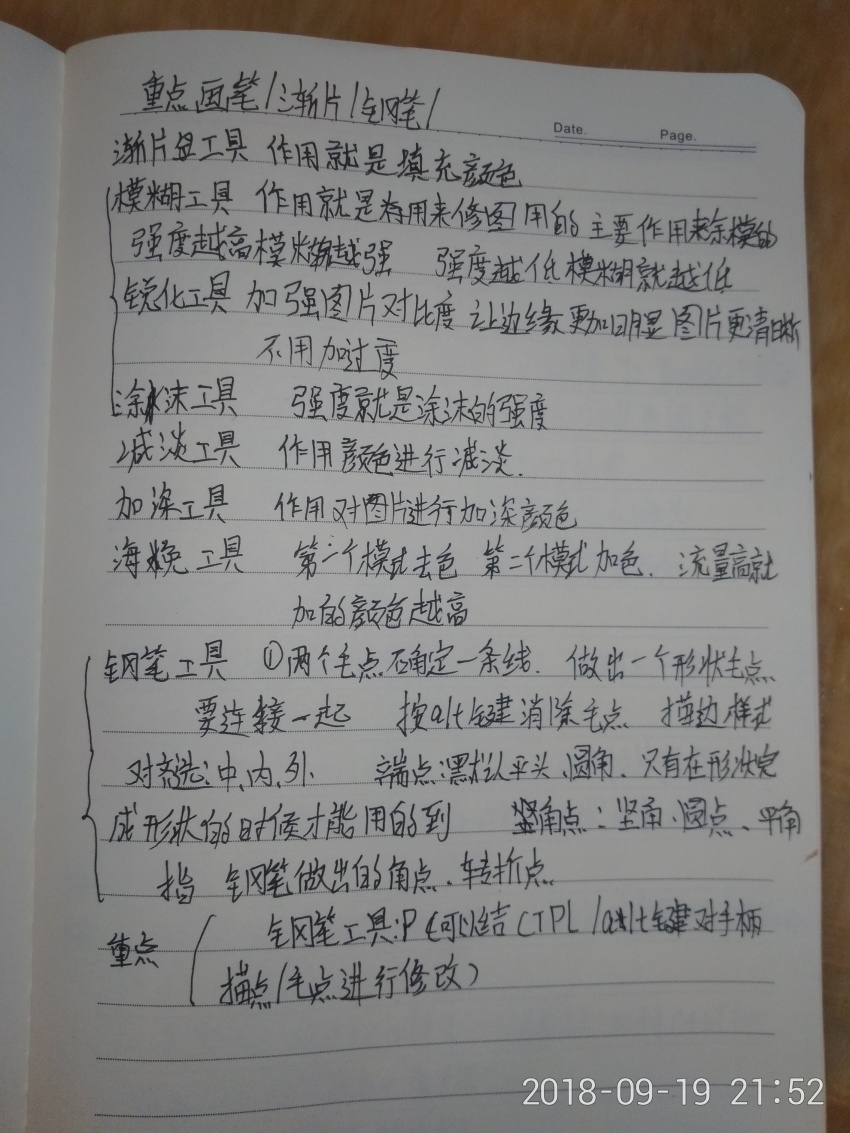 重点画笔/渐片/钢笔/
Date. Page.
渐片显工具 作用就是填充颜色
模糊工具 作用就是有用来修图用的 主要作用来余模的
强度越高模糊越强 强度越低模糊就越低
锐化工具 加强图片对比度 让边缘更加明显 图片更清晰
不用加过度
涂沫工具 强度就是涂沫的强度
减淡工具 作用颜色进行减淡.
加深工具 作用对图片进行加深颜色
海绵工具 第一个模式去色 第二个模式加色. 流量高就
加的颜色越高
钢笔工具 ①两个毛点确定一条线. 做出一个形状毛点
要连接一起 按alt键消除毛点 描边样式
对齐选:中、内、外. 端点:默认平头、圆角. 只有在形状完
成形状的时候才能用的到 竖角点:竖角、圆点、平角
指 钢笔做出的角点、转折点
重点 钢笔工具:P (可以结CTPL/alt键对手柄
描点/毛点进行修改)
2018-09-19 21:52